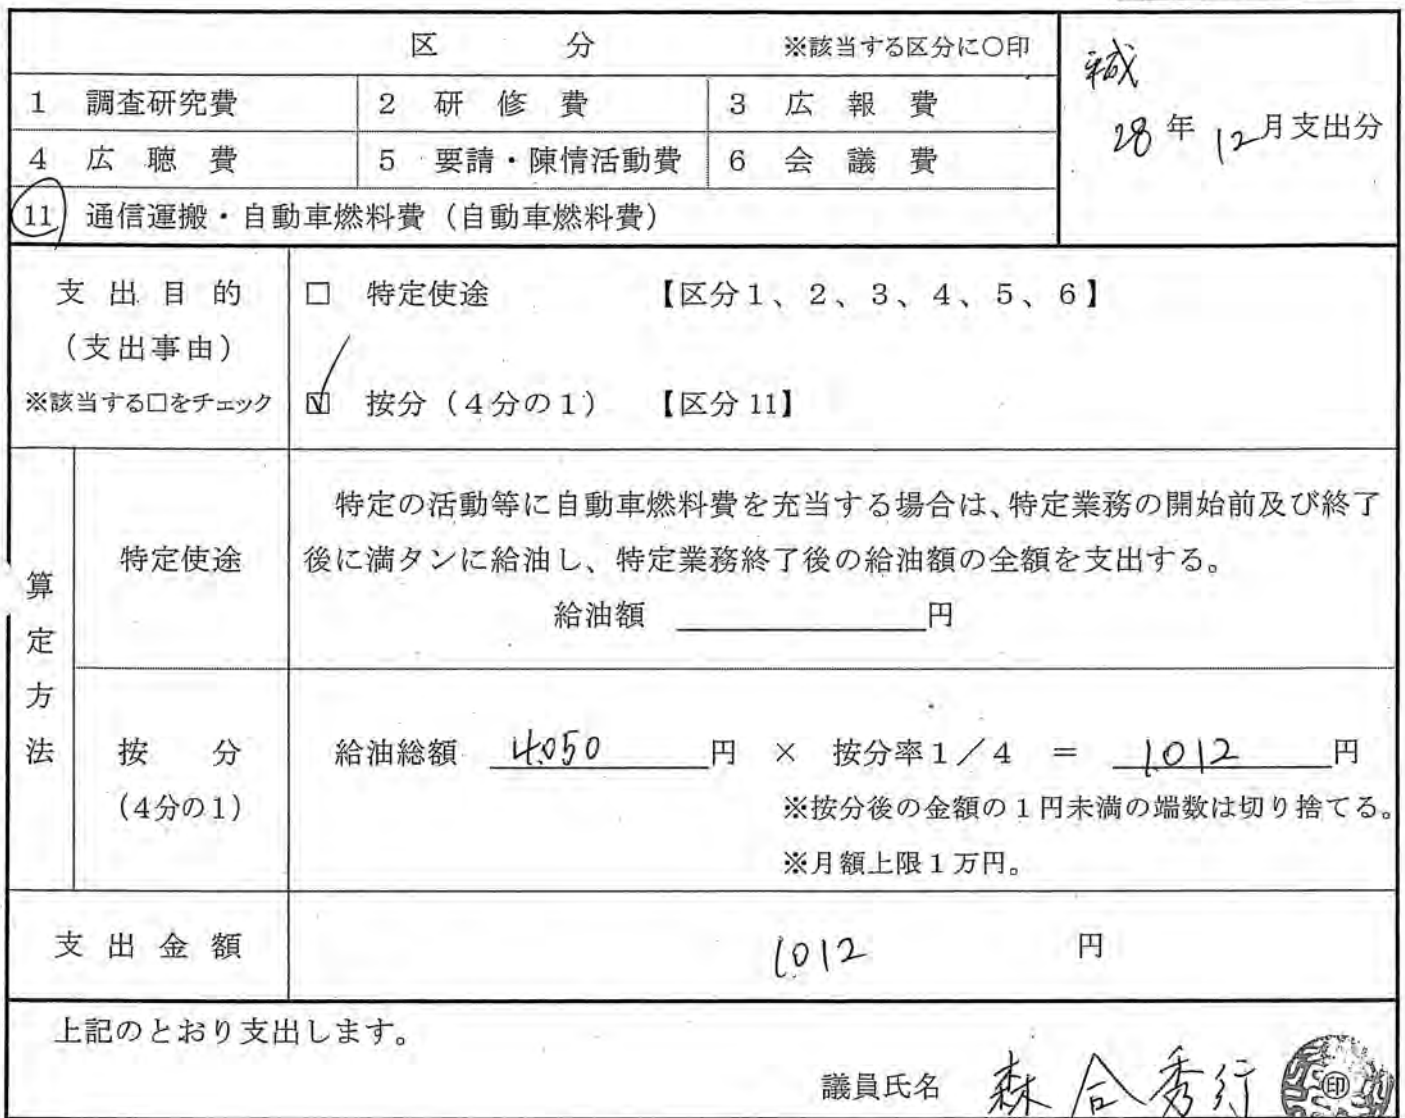 区 分 ※該当する区分に○印
1 調査研究費 2 研修費 3 広報費
4 広聴費 5 要請・陳情活動費 6 会議費
11 通信運搬・自動車燃料費(自動車燃料費)
28年12月支出分
支出目的
(支出事由)
※該当する□をチェック
□ 特定使途 【区分1、2、3、4、5、6】
☑ 按分(4分の1) 【区分11】
算定方法
特定使途
特定の活動等に自動車燃料費を充当する場合は、特定業務の開始前及び終了
後に満タンに給油し、特定業務終了後の給油額の全額を支出する。
給油額 円
按分
(4分の1)
給油総額 4050 円 × 按分率1/4 = 1012 円
※按分後の金額の1円未満の端数は切り捨てる。
※月額上限1万円。
支出金額 1012 円
上記のとおり支出します。
議員氏名 森合秀行 印